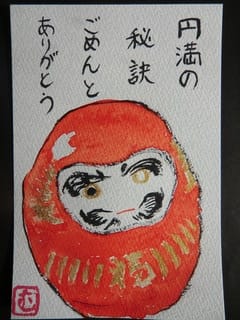 円満の
秘訣
ごめんと
ありがとう
む